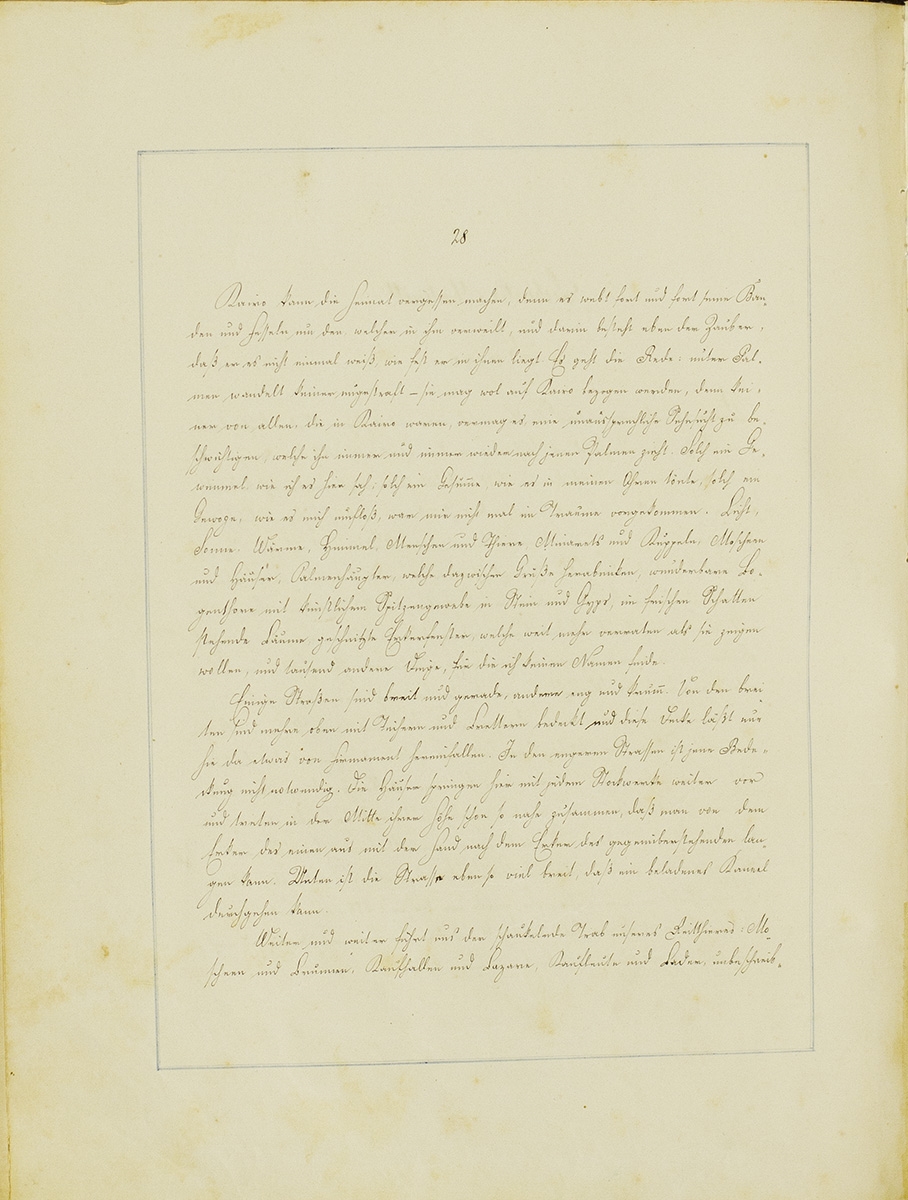 28
Kairo kann die Heimat vergessen machen, denn es webt fort und fort seine Ban-
den und Fesseln um den, welcher in ihm verweilt, und darin besteht eben der Zauber,
daß er es nicht einmal weiß, wie fest er in ihnen liegt. Es geht die Rede: unter Pal-
men wandelt keiner ungestraft – sie mag wol auf Kairo bezogen werden, denn kei-
ner von allen, die in Kairo waren, vermag es eine unaussprechliche Sehnsucht zu be-
schwichtigen, welche ihn immer und immer wieder nach jenen Palmen zieht. Solch ein Ge-
wimmel, wie ich es hier sah, solch ein Gesumme, wie es in meinen Ohren tönte, solch ein
Gewoge, wie es mich umfloß, war mir nicht mal im Traume vorgekommen. Licht,
Sonne, Wärme, Himmel, Menschen und Thiere, Minarets und Kuppeln, Moscheen
und Häuser, Palmenhäupter, welche dazwischen Grüße herabnicken, wunderbare Bo-
genthore mit künstlichem Spitzengewebe in Stein und Gyps, im frischen Schatten
stehende Bäume, geschnitzte Erkerfenster, welche weit mehr verraten als sie zeigen
wollen, und tausend andere Dinge, für die ich keinen Namen finde.
Einige Straßen sind breit und gerade, andere eng und krumm. Von den brei-
ten sind mehre oben mit Tüchern und Brettern bedeckt und diese Decke läßt nur
hie da etwas von Firmament hereinfallen. In den engeren Strassen ist jene Bede-
ckung nicht notwendig. Die Häuser springen hier mit jedem Stockwerke weiter vor
und treten in der Mitte ihrer Höhe schon so nahe zusammen, daß man von dem
Erker des einen aus mit der Hand nach dem Erker des gegenüberstehenden lan-
gen kann. Unten ist die Strasse eben so viel breit, daß ein beladenes Kameel
durchgehen kann.
Weiter und weiter führt uns der schaukelnde Trab unseres Reitthieres: Mo-
scheen und Brunnen, Kaufhallen und Bazare, Kaufleute und Bäder, unbeschreib-